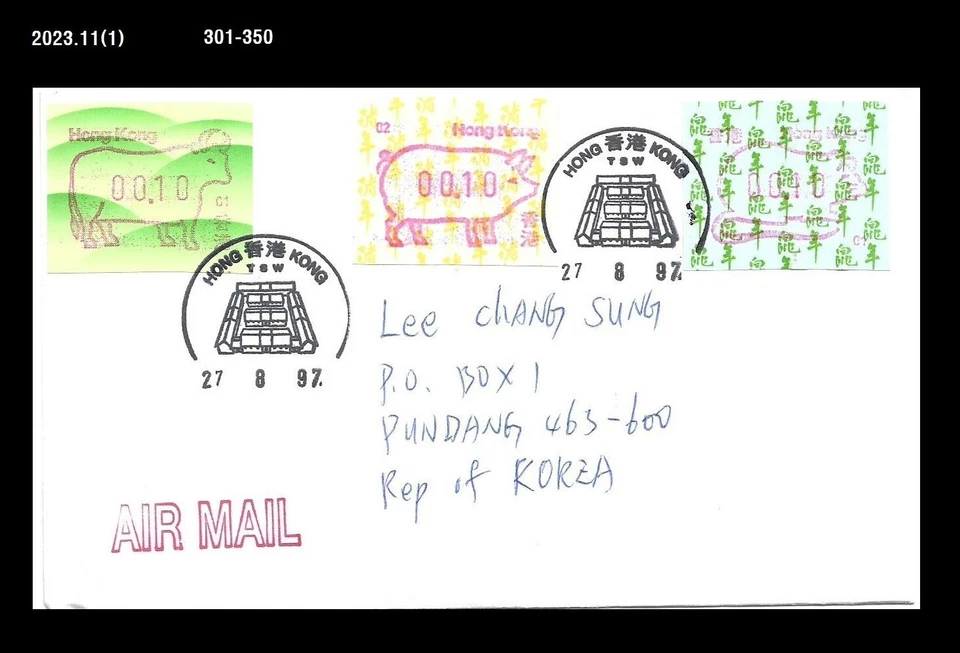 2023.11(1) 301-350
Hong Kong
00.10
02 Hong Kong
00.10
香港 Hong Kong
00.10
HONG 香港 KONG
TSW
27 8 97.
HONG 香港 KONG
TSW
27 8 97.
Lee ChANG SUNG
P.O. BOX 1
PUNDANG 463-600
Rep of KOREA
AIR MAIL